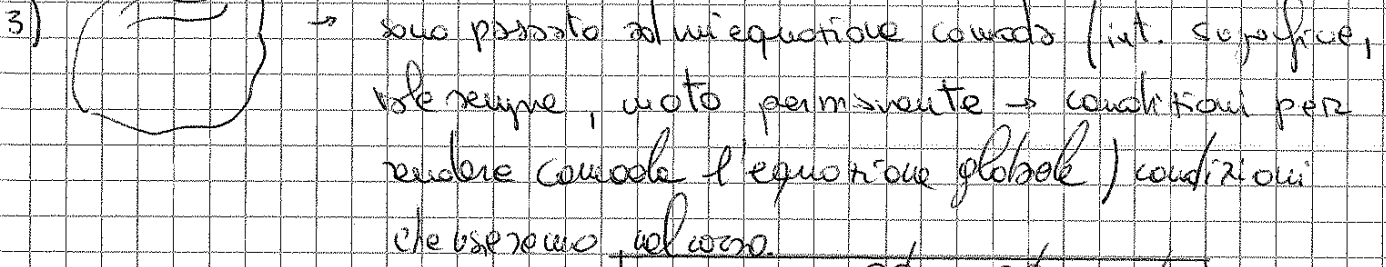 3) → sono passato ad un'equazione comoda (int. superfice,
vale sempre, moto permanente → condizioni per
rendere comoda l'equazione globale) condizioni
che useremo nel corso.